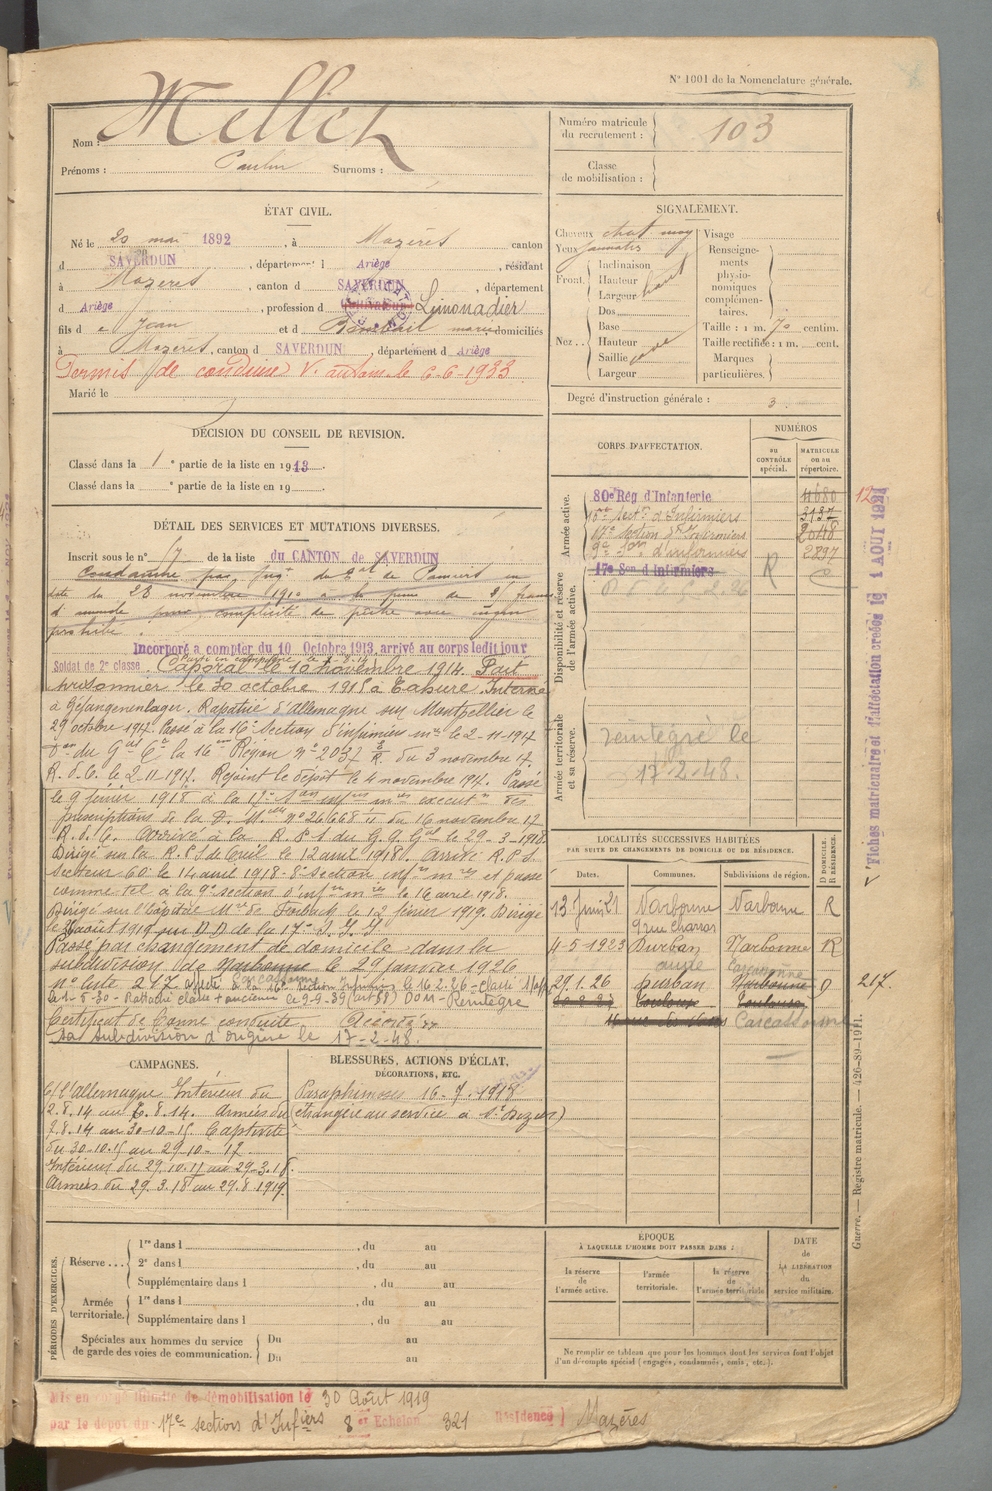 N° 1001 de la Nomenclature générale.
Nom : Mellet
Prénoms : Paulin Surnoms :
Numéro matricule du recrutement : 103
Classe de mobilisation :
ÉTAT CIVIL.
Né le 20 mai 1892, à Mazères canton
d SAVERDUN, département d Ariège, résidant
à Mazères, canton d SAVERDUN, département
d Ariège, profession d Limonadier
fils d e Jean et d domiciliés
à Mazères, canton d SAVERDUN, département d Ariège
Permis de conduire V. autom. le 6-6-1933
Marié le
SIGNALEMENT.
Cheveux chat
Yeux
Front. Inclinaison
Hauteur
Largeur
Nez.. Dos
Base
Hauteur
Saillie
Largeur
Visage
Renseignements physionomiques complémentaires.
Taille : 1 m. 70 centim.
Taille rectifiée : 1 m. cent.
Marques particulières.
Degré d'instruction générale : 3.
DÉCISION DU CONSEIL DE REVISION.
Classé dans la 1e partie de la liste en 1913.
Classé dans la e partie de la liste en 19
CORPS D'AFFECTATION.
NUMÉROS
au CONTRÔLE spécial.
MATRICULE ou au répertoire.
Armée active.
80e Rég d'Infanterie 4680
16e Sect. d'Infirmiers 3137
17e Section d'Infirmiers 2048
9e Son d'infirmiers 2897
Disponibilité et réserve de l'armée active.
17e Son d'Infirmiers R
Armée territoriale et sa réserve.
réintégré le
17-2-48.
12
Fiches matriculaire et d'affectation créées le 1 AOUT 1921
DÉTAIL DES SERVICES ET MUTATIONS DIVERSES.
Inscrit sous le n° 17 de la liste du CANTON de SAVERDUN
Condamné par jug. du de Pamiers en
date du 28 novembre 1910 à la peine de francs
d'amende pour complicité de pêche avec engin
prohibé.
Incorporé a compter du 10 Octobre 1913, arrivé au corps ledit jour
Soldat de 2e classe. Caporal le 10 novembre 1914. Fait
prisonnier le 30 octobre 1915 à Tahure. Interné
à Gefangenenlager. Rapatrié d'Allemagne sur Montpellier le
29 octobre 1917. Passé à la 16e Section d'infirmiers mres le 2-11-1917
Don du Gal Ct la 16me Région n° 2037 du 3 novembre 17.
R.D.C. le 2-11-1917. Rejoint le dépôt le 4 novembre 1917. Passé
le 9 février 1918 à la 17e Son infres mres exécutn des
prescriptions de la D. Mlle n° 26668 du 16 novembre 17
R.D.C. Arrivé à la R.P.S du G.Q.Gal le 29-3-1918.
Dirigé sur la R.P.S de Creil le 12 avril 1918. Arrivé R.P.S.
Secteur 60 le 14 avril 1918. 8e Section infres mres et passé
comme tel à la 9e section d'infres mres le 16 avril 1918.
Dirigé sur l'hôpital Mre de Forbach le 12 février 1919. Dirigé
le 30 août 1919 sur D.D. de la 17e S.I.M
Passé par changement de domicile dans la
subdivision de Narbonne le 29 janvier 1926
Carcassonne
n° liste 217 affecté à la 16e Section Infirmiers le 16.2.26
le 1-5-30 - Rattaché classe + ancienne le 9-9-39 (art 58) DOM - Réintégré
Certificat de bonne conduite : Accordé
sa subdivision d'origine le 17-2-48.
LOCALITÉS SUCCESSIVES HABITÉES
PAR SUITE DE CHANGEMENTS DE DOMICILE OU DE RÉSIDENCE.
Dates. Communes. Subdivisions de région. D DOMICILE. R RÉSIDENCE.
13 Juin 21 Narbonne Narbonne R
9 rue Charras
4-5-1923 Durban Narbonne R
aude Carcassonne
29.1.26 Durban Narbonne D 217.
Toulouse Toulouse
Carcassonne
CAMPAGNES.
C/ l'Allemagne Intérieur du
2.8.14 au 6.8.14. Armées du
7.8.14 au 30-10-15 Captivité
du 30-10.15 au 29-10-17.
Intérieur du 29.10.17 au 29-3.18.
Armées du 29.3.18 au 29.8.1919.
BLESSURES, ACTIONS D'ÉCLAT,
DÉCORATIONS, ETC.
Paraphimosis 16-7-1918
(étrangère au service à St Dizier)
PÉRIODES D'EXERCICES.
Réserve... 1re dans l , du au
2e dans l , du au
Supplémentaire dans l , du au
Armée territoriale. 1re dans l , du au
Supplémentaire dans l , du au
Spéciales aux hommes du service de garde des voies de communication. Du au
Du au
ÉPOQUE
À LAQUELLE L'HOMME DOIT PASSER DANS :
la réserve de l'armée active.
l'armée territoriale.
la réserve de l'armée territoriale
DATE de LA LIBÉRATION du service militaire.
Ne remplir ce tableau que pour les hommes dont les services font l'objet
d'un décompte spécial (engagés, condamnés, omis, etc.).
Guerre. — Registre matricule. — 426-89-1911.
Mis en congé illimité de démobilisation le 30 Août 1919
par le dépôt du 17e section d'Infiers 8e Echelon 321 Résidence } Mazères